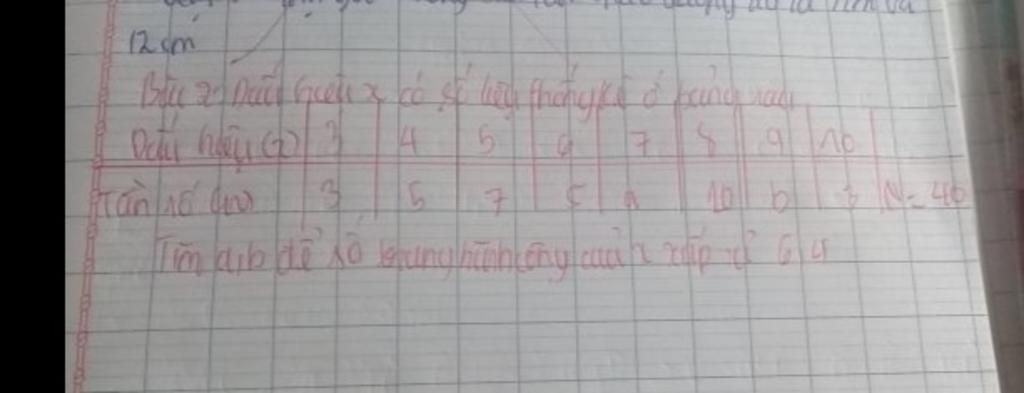 12 cm
Bài 2: Dấu hiệu x có số liệu thống kê ở bảng sau
Dấu hiệu (x) 3 4 5 6 7 8 9 10
Tần số (n) 3 5 7 5 a 10 b N = 40
Tìm a,b để số trung bình cộng của x xấp xỉ 6,4